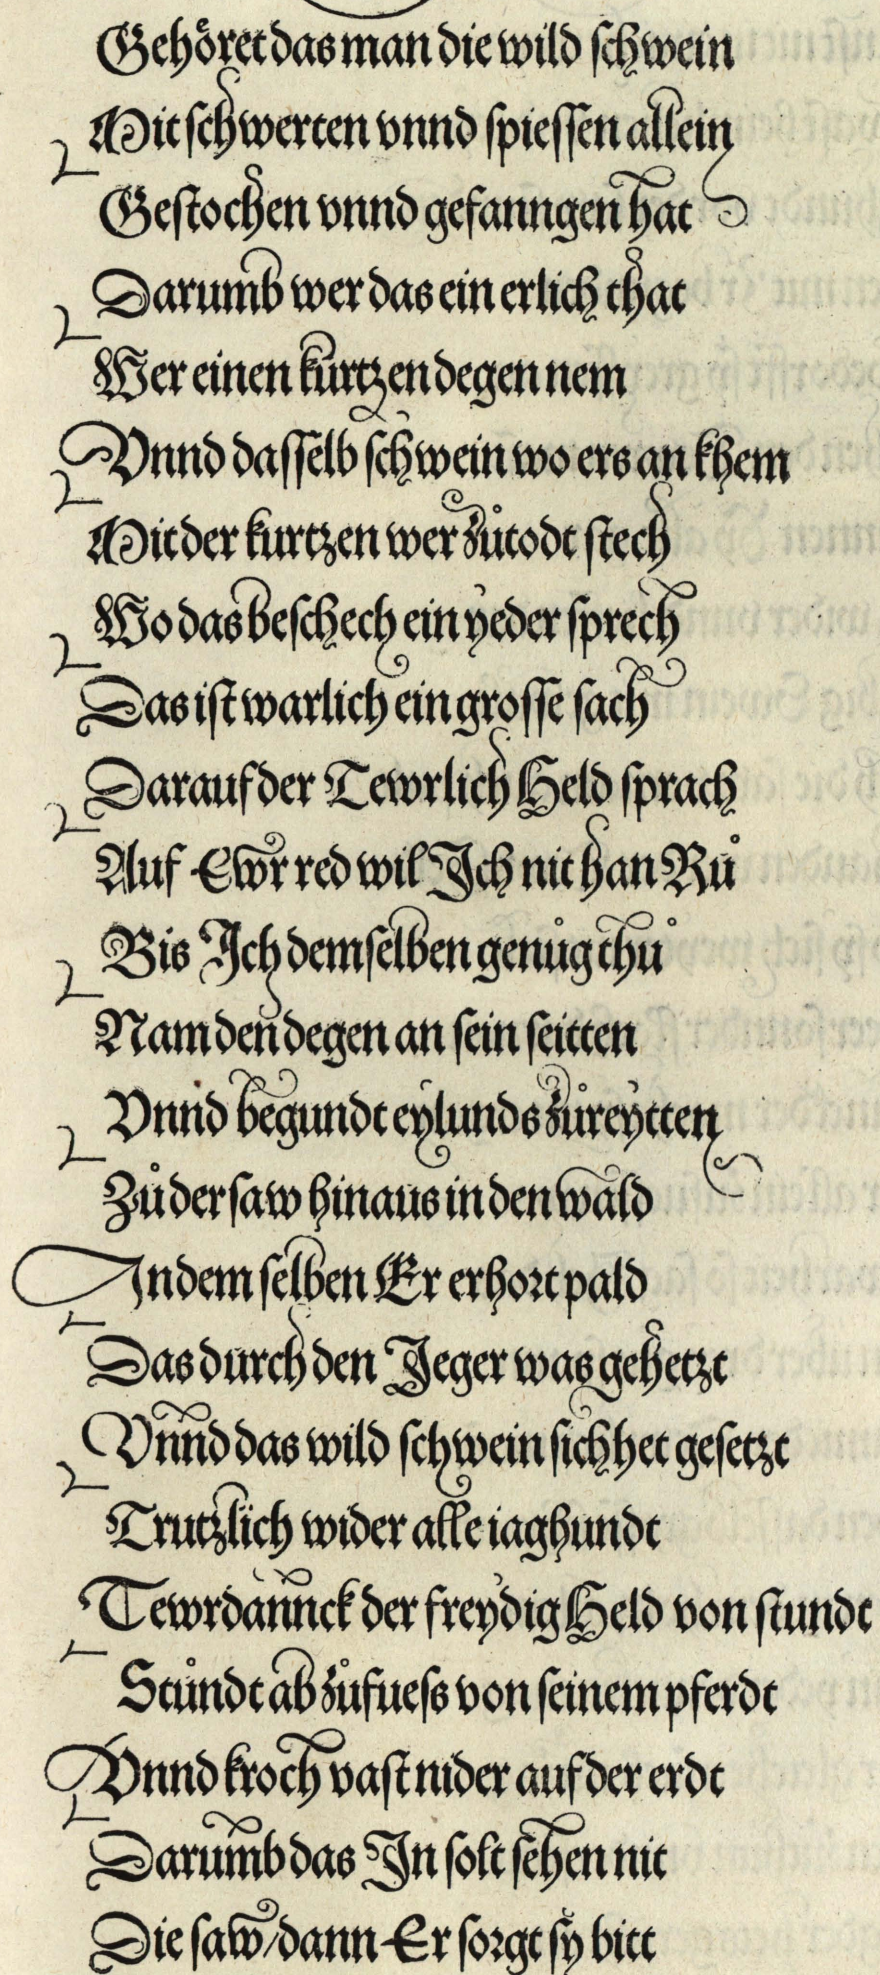 Gehöret das man die wild schwein
Mit schwerten vnnd spiessen allein
Gestochen vnnd gefanngen hat
Darumb wer das ein erlich that
Wer einen kurtzen degen nem
Vnnd dasselb schwein wo ers an khem
Mit der kurtzen wer zůtodt stech
Wo das beschech ein yeder sprech
Das ist warlich ein grosse sach
Darauf der Tewrlich Held sprach
Auf Ewr red wil Ich nit han Rů
Bis Ich demselben genůg thů
Nam den degen an sein seitten
Vnnd begundt eylunds zůreytten
Zů der saw hinaus in den wald
In dem selben Er erhort pald
Das durch den Jeger was gehetzt
Vnnd das wild schwein sich het gesetzt
Trutzlich wider alle iaghundt
Tewrdannck der freydig Held von stundt
Stůndt ab zůfuess von seinem pferdt
Vnnd kroch vast nider auf der erdt
Darumb das In solt sehen nit
Die saw/dann Er sorgt sy bitt